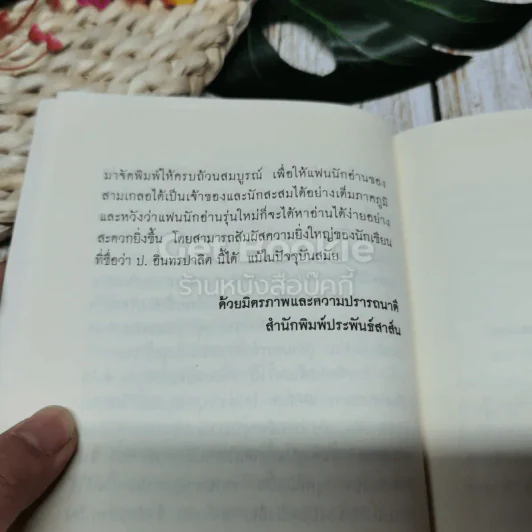 มาจัดพิมพ์ให้ครบถ้วนสมบูรณ์ เพื่อให้แฟนนักอ่านของ
สามเกลอได้เป็นเจ้าของและนักสะสมได้อย่างเต็มภาคภูมิ
และหวังว่าแฟนนักอ่านรุ่นใหม่ก็จะได้หาอ่านได้ง่ายอย่าง
สะดวกยิ่งขึ้น โดยสามารถสัมผัสความยิ่งใหญ่ของนักเขียน
ที่ชื่อว่า ป. อินทรปาลิต นี้ได้ แม้ในปัจจุบันสมัย
Get Bookie
ร้านหนังสือบุ๊คกี้
ด้วยมิตรภาพและความปรารถนาดี
สำนักพิมพ์ประพันธ์สาส์น